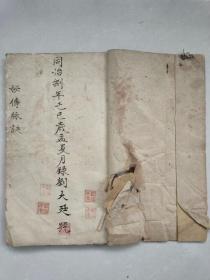 同治捌年己巳歲孟夏月錄劉大廷號
秘傳脉訣